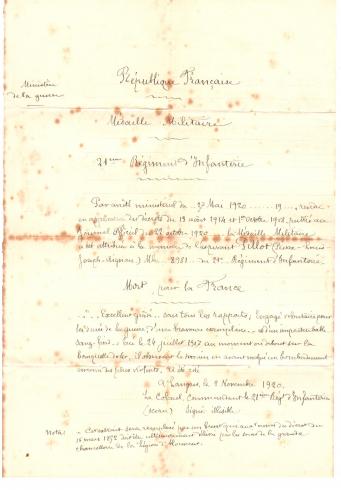 Ministère
de la guerre
République Française
Médaille Militaire
21ème Régiment d'Infanterie
Par arrêté ministériel du 27 Mai 1920
en application des décrets du 13 août 1914 et 1er Octobre 1918, publié au
Journal Officiel du 22 octobre 1920 la Médaille Militaire
a été attribuée à la mémoire de Tillot (Pierre-Louis
Joseph Mle 8981 du 21e Régiment d'Infanterie
Mort pour la France
Excellent gradé sous tous les rapports, engagé volontaire pour
la durée de la guerre, d'une bravoure exemplaire et d'un imperturbable
sang-froid le 24 juillet 1917 au moment où debout sur la
banquette il observait le terrain en avant malgré un bombardement
des plus violents, a été cité
A Langres, le 8 Novembre 1920,
Le Colonel, Commandant le 21ème Régt d'Infanterie
(sceau) Signé illisible
Nota: Cet extrait sera remplacé par un brevet qui aux termes du décret du
1852 doit être délivré par les soins de la grande
chancellerie de la Légion d'Honneur.